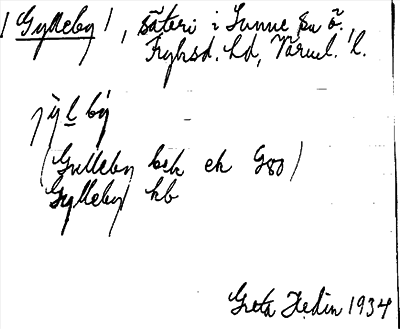 /Gylleby/, säteri i Sunne sn Ö.
Fryksd. hd, Värml. l.
jỳl by
(Gulleby bek ek G80)
Gylleby kb
Greta Hedin 1934